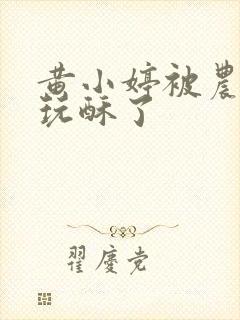 黄小婷被農
玩酥了
翟慶党